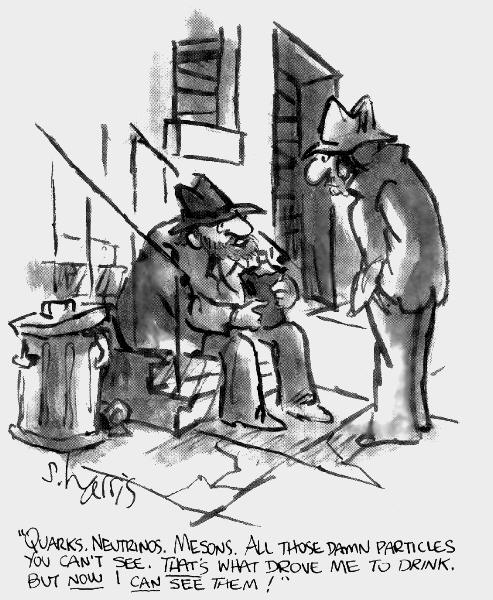 s. harris
"QUARKS. NEUTRINOS. MESONS. ALL THOSE DAMN PARTICLES
YOU CAN'T SEE. THAT'S WHAT DROVE ME TO DRINK.
BUT NOW I CAN SEE THEM!"